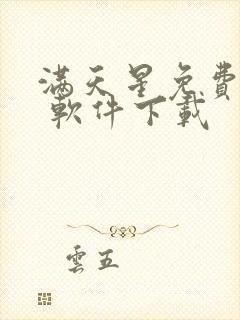 满天星免費
軟件下載
雲五